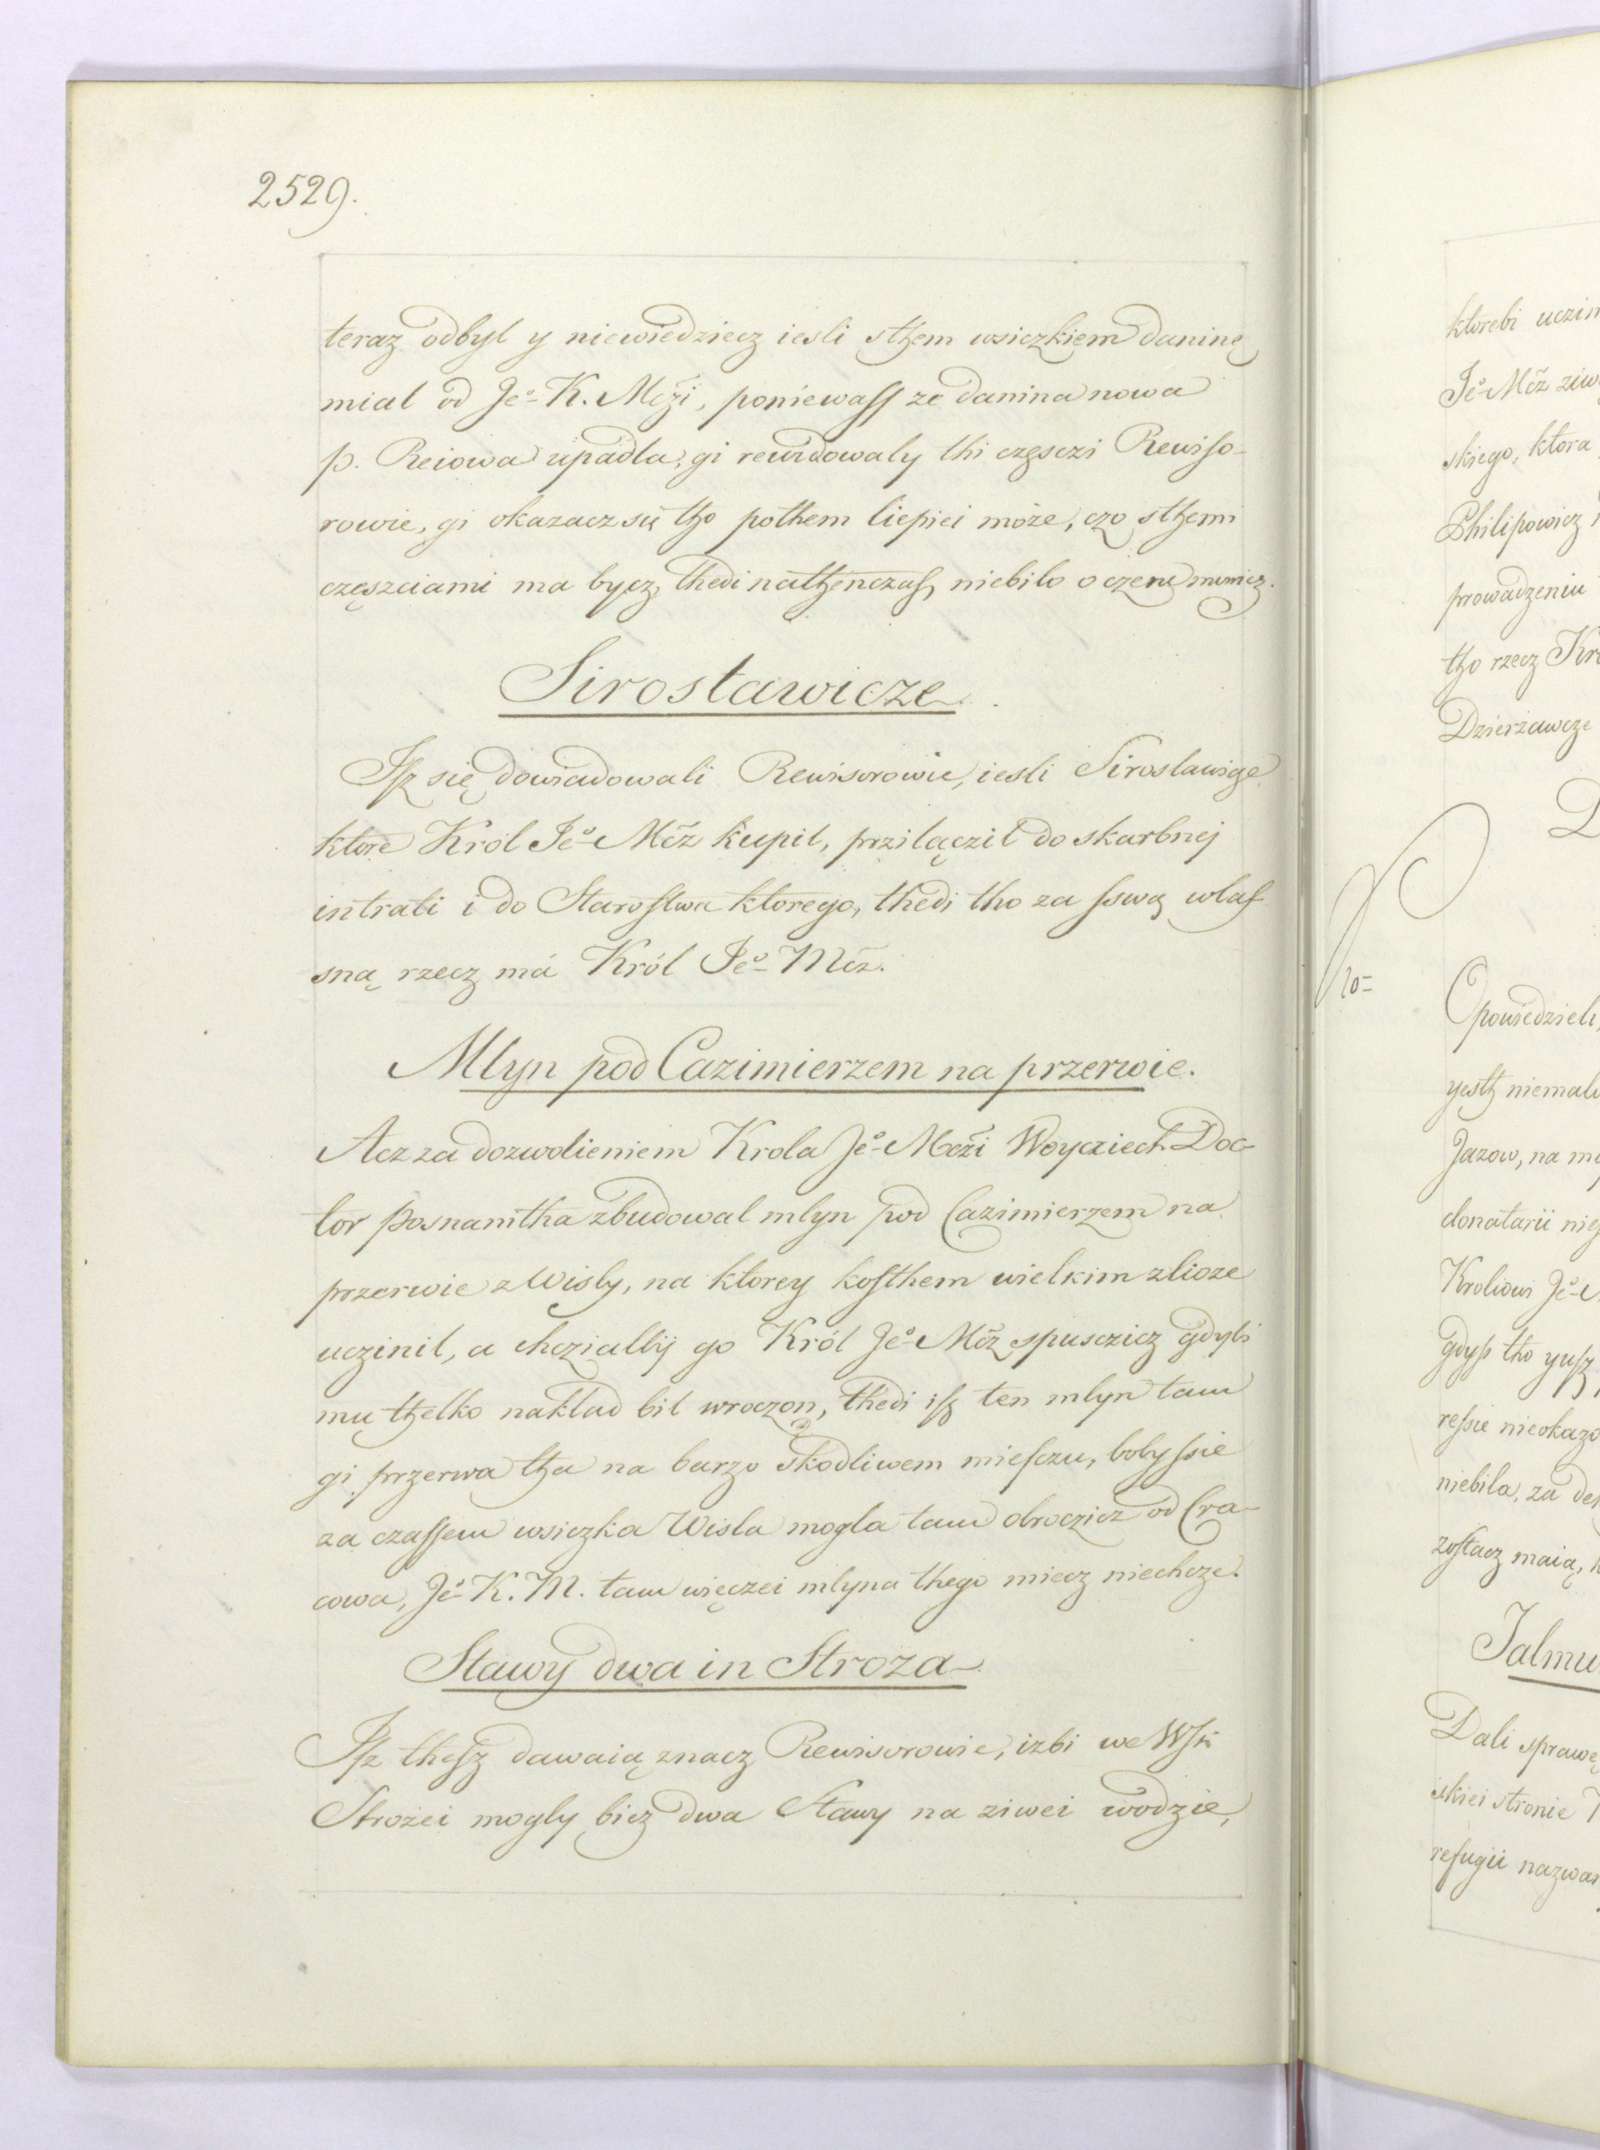 2529.
teraz odbyl y niewiedziecz iesli sthem wsiczkiem daninę
mial od Jeº K. Mczi, poniewaſſ ze danina nowa
p. Reiowa upadla, gi rewidowaly thi częsczi Rewiso-
rowie, gi okazacz się tho pothem liepiei może, czo sthemi
częszciami ma bycz, thedi nathenczaſ niebilo o czem mowicz.
Siroslawicze
Iſz się dowiadowali Rewisorowie, iesli Siroslawicze
ktore Król Jeº Mcz kupil, przilączil do skarbnej
intrati i do Staroſtwa ktorego, thedi tho za ſswą wlaſ
sną rzecz má Król Jeº Mcz.
Mlyn pod Cazimierzem na przerwie.
Acz za dozwolieniem Krola Jeº Mczi Woyciech Doc-
tor Posnanitha zbudowal mlyn pod Cazimierzem na
przerwie z Wisly, na ktorey koſthem wielkim zlioze
uczinil, a chczialby go Król Jeº Mcz spusczicz gdybi
mu thelko naklad bil wroczon, thedi iſz ten mlyn tam
gi przerwa tha na barzo skodliwem mieſczu, boby ſsie
za czaſſem wsiczka Wisla mogla tam obroczicz od Cra-
cowa, Jeº K. M. tam więczei mlyna thego miecz niechcze.
Stawy dwa in Stroza
Iſz theſz dawaią znacz Rewisorowie, izbi we Wſi
Strożei mogly bicz dwa Stawy na ziwei wodzie,
ktorebi
Jeº Mcz
skiego, ktora
Philipowicz
prowadzeniu
tho rzecz
Dzierżawcze
Opowiedzieli,
yesth
Jazow, na
donatarii
Krolowi Jeº
gdyſs tho yuſz
reſsie
niebila, za
zoſtacz maią,
Dali sprawę
skiei stronie
refugii